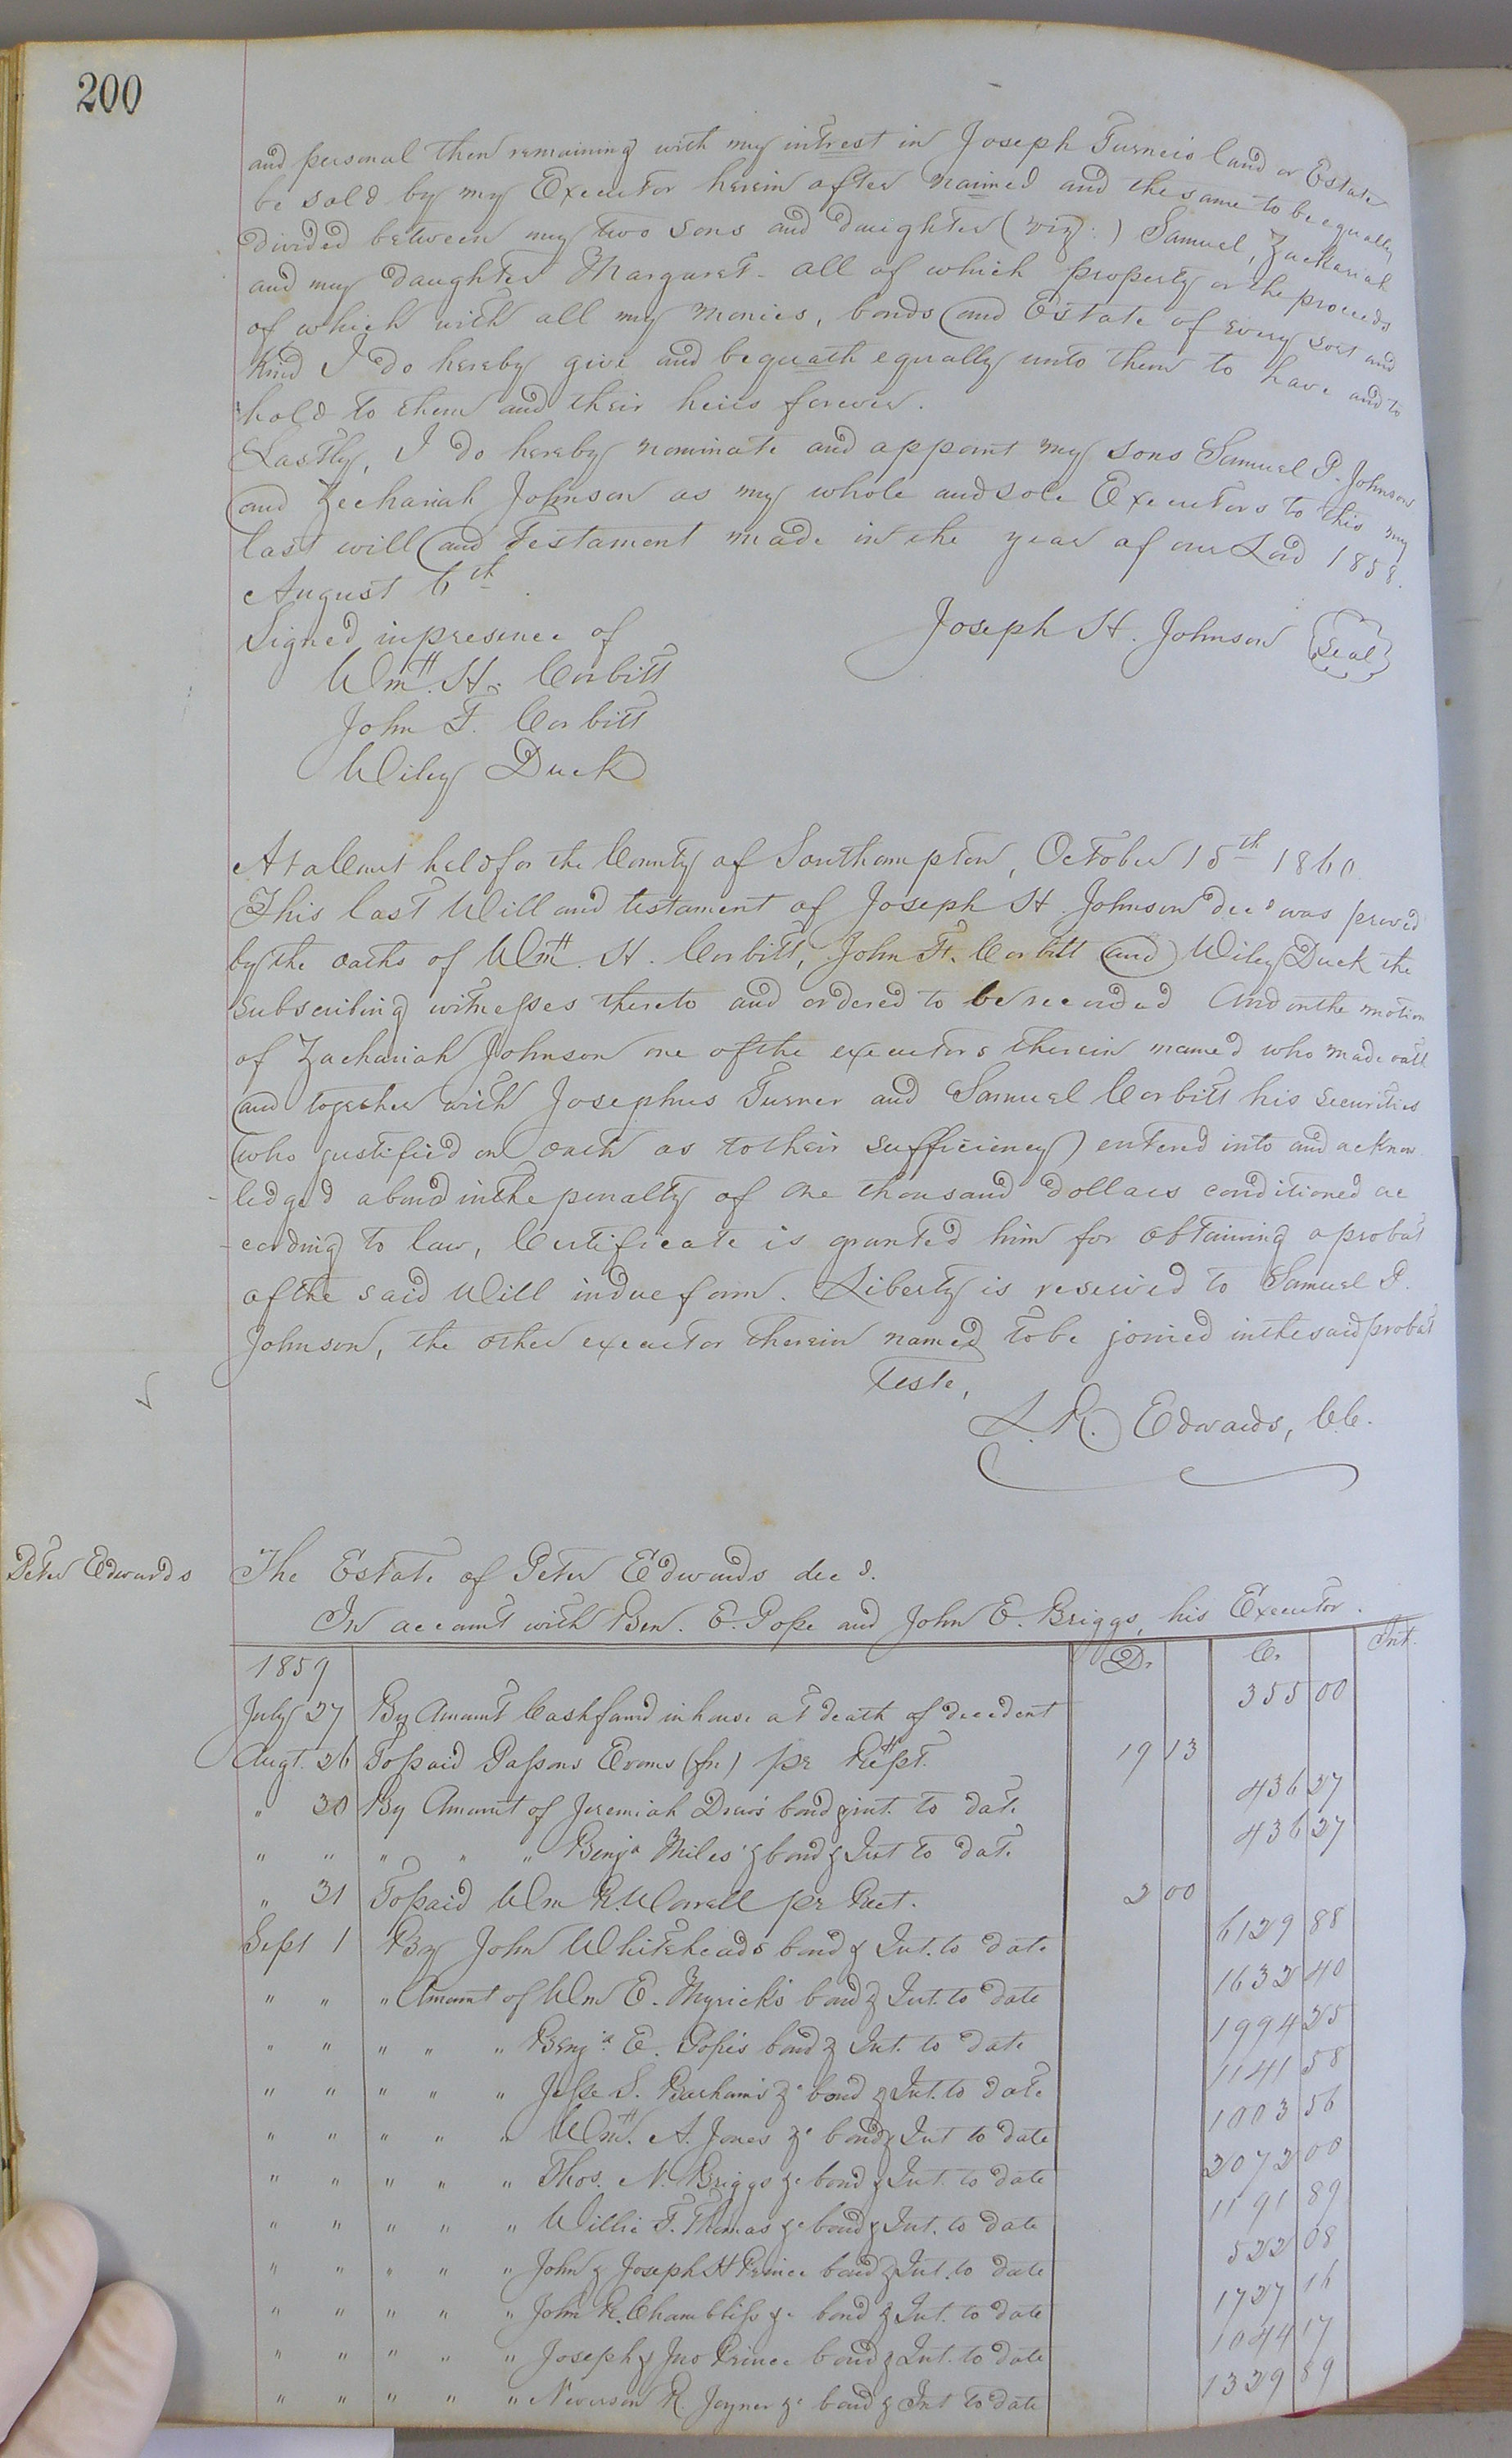 200
and personal then remaining with my intrest in Joseph Turner's land or Estate
be sold by my Executor herein after naimed and the same to be equally
divided between my two sons and daughter (viz:) Samuel, Zachariah
and my daughter Margaret - all of which property or the proceeds
of which with all my monies, bonds and Estate of every sort and
kind I do hereby give and bequath equally unto them to have and to
hold to them and their heirs forever.
Lastly, I do hereby nominate and appoint my sons Samuel P. Johnson
and Zechariah Johnson as my whole and sole Executors to this my
last will and testament made in the year of our Lord 1858.
August 6th.
Signed in presence of
Joseph H. Johnson Seal
Wm. H. Corbitt
John F. Corbitt
Wiley Duck
At a Court held for the County of Southampton, October 15th 1860.
This last Will and testament of Joseph H. Johnson decd was proved
by the oaths of Wm. H. Corbitt, John F. Corbitt and Wiley Duck the
subscribing witnesses thereto and ordered to be recorded And on the motion
of Zachariah Johnson one of the executors therein named who made oath
and together with Josephus Turner and Samuel Corbitt his securities
(who justified on oath as to their sufficiency) entered into and acknow
ledged a bond in the penalty of One thousand dollars conditioned ac
cording to law, Certificate is granted him for obtaining a probat
of the said Will in due form. Liberty is reserved to Samuel P.
Johnson, the other executor therein named to be joined in the said probat
Teste,
L. R. Edwards, C.C.
Peter Edwards
The Estate of Peter Edwards decd.
In account with Ben. E. Pope and John E. Briggs, his Executor.
1859 Dr Cr. Int.
July 27 By Amount Cash found in house at death of decedent 355 00
Augt. 26 To paid Parsons Evans (fn) pr Rept. 19 13
" 30 By Amount of Jeremiah Drew's bond & int. to date 436 27
" " " " " Benja Miles' & bond & Int to date 436 27
" 31 To paid Wm R. Worrell pr Rect. 2 00
Sept 1 By John Whitehead's bond & Int. to date 6129 88
" " " Amount of Wm E. Myrick's bond & Int. to date 1632 40
" " " " " Benja. E. Pope's bond & Int. to date 1994 25
" " " " " Jesse S. Barham's &c bond & Int. to date 1141 58
" " " " " Wm. A. Jones &c bond & Int to date 1003 56
" " " " " Thos. N. Briggs &c bond & Int. to date 2072 00
" " " " " Willie F. Thomas &c bond & Int. to date 1191 89
" " " " " John & Joseph H Prince bond & Int. to date 522 08
" " " " " John R. Chambliss &c bond & Int. to date 1727 16
" " " " " Joseph & Jno Prince bond & Int. to date 1044 17
" " " " " Neverson R. Joyner &c bond & Int to date 1329 89